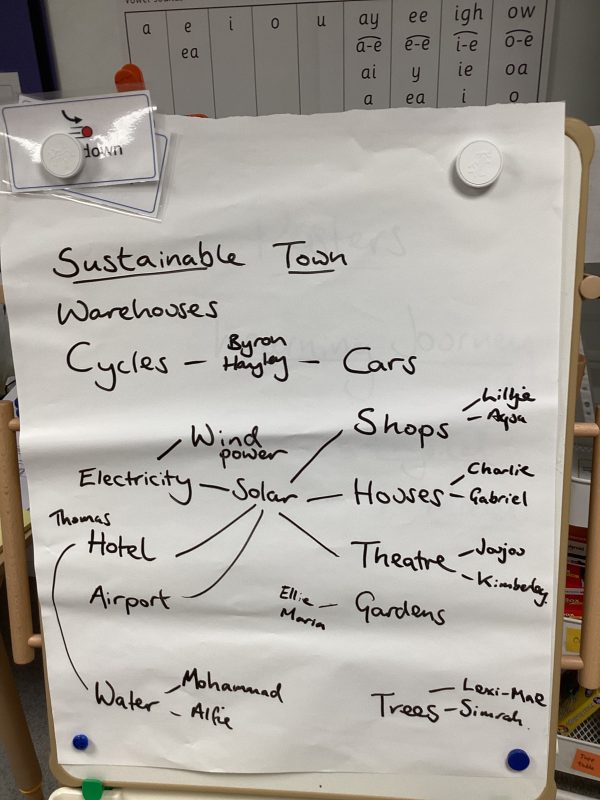 a e i o u ay ee igh ow
ea a-e e-e i-e o-e
ai y ie oa
a ea i o
down
Sustainable Town
Warehouses
Cycles – Byron Hayley – Cars
Shops – Lillie
– Aqua
Wind power
Electricity – Solar – Houses – Charlie
– Gabriel
Thomas
Hotel
Theatre – Joujou
– Kimberley
Airport
Ellie
Maria – Gardens
Water – Mohammad
– Alfie
Trees – Lexi-Mae
– Simrah.